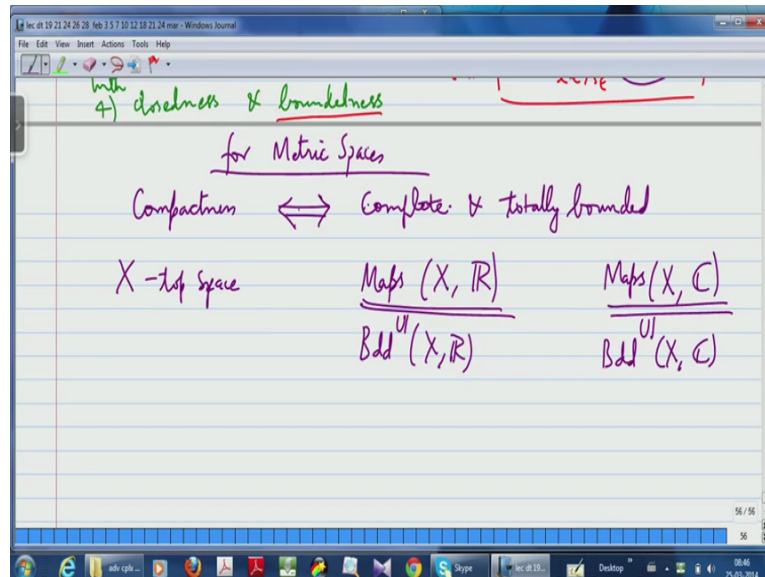 lec dt 19 21 24 26 28 feb 3 5 7 10 12 18 21 24 mar - Windows Journal
File Edit View Insert Actions Tools Help
4) closedness & boundedness
for Metric Spaces
Compactness ⟺ Complete & totally bounded
X - top space Maps (X, ℝ) Maps (X, ℂ)
U| U|
Bdd (X, ℝ) Bdd (X, ℂ)
56 / 56
56
adv cplx ... Skype lec dt 19... Desktop » 08:46
25-03-2014